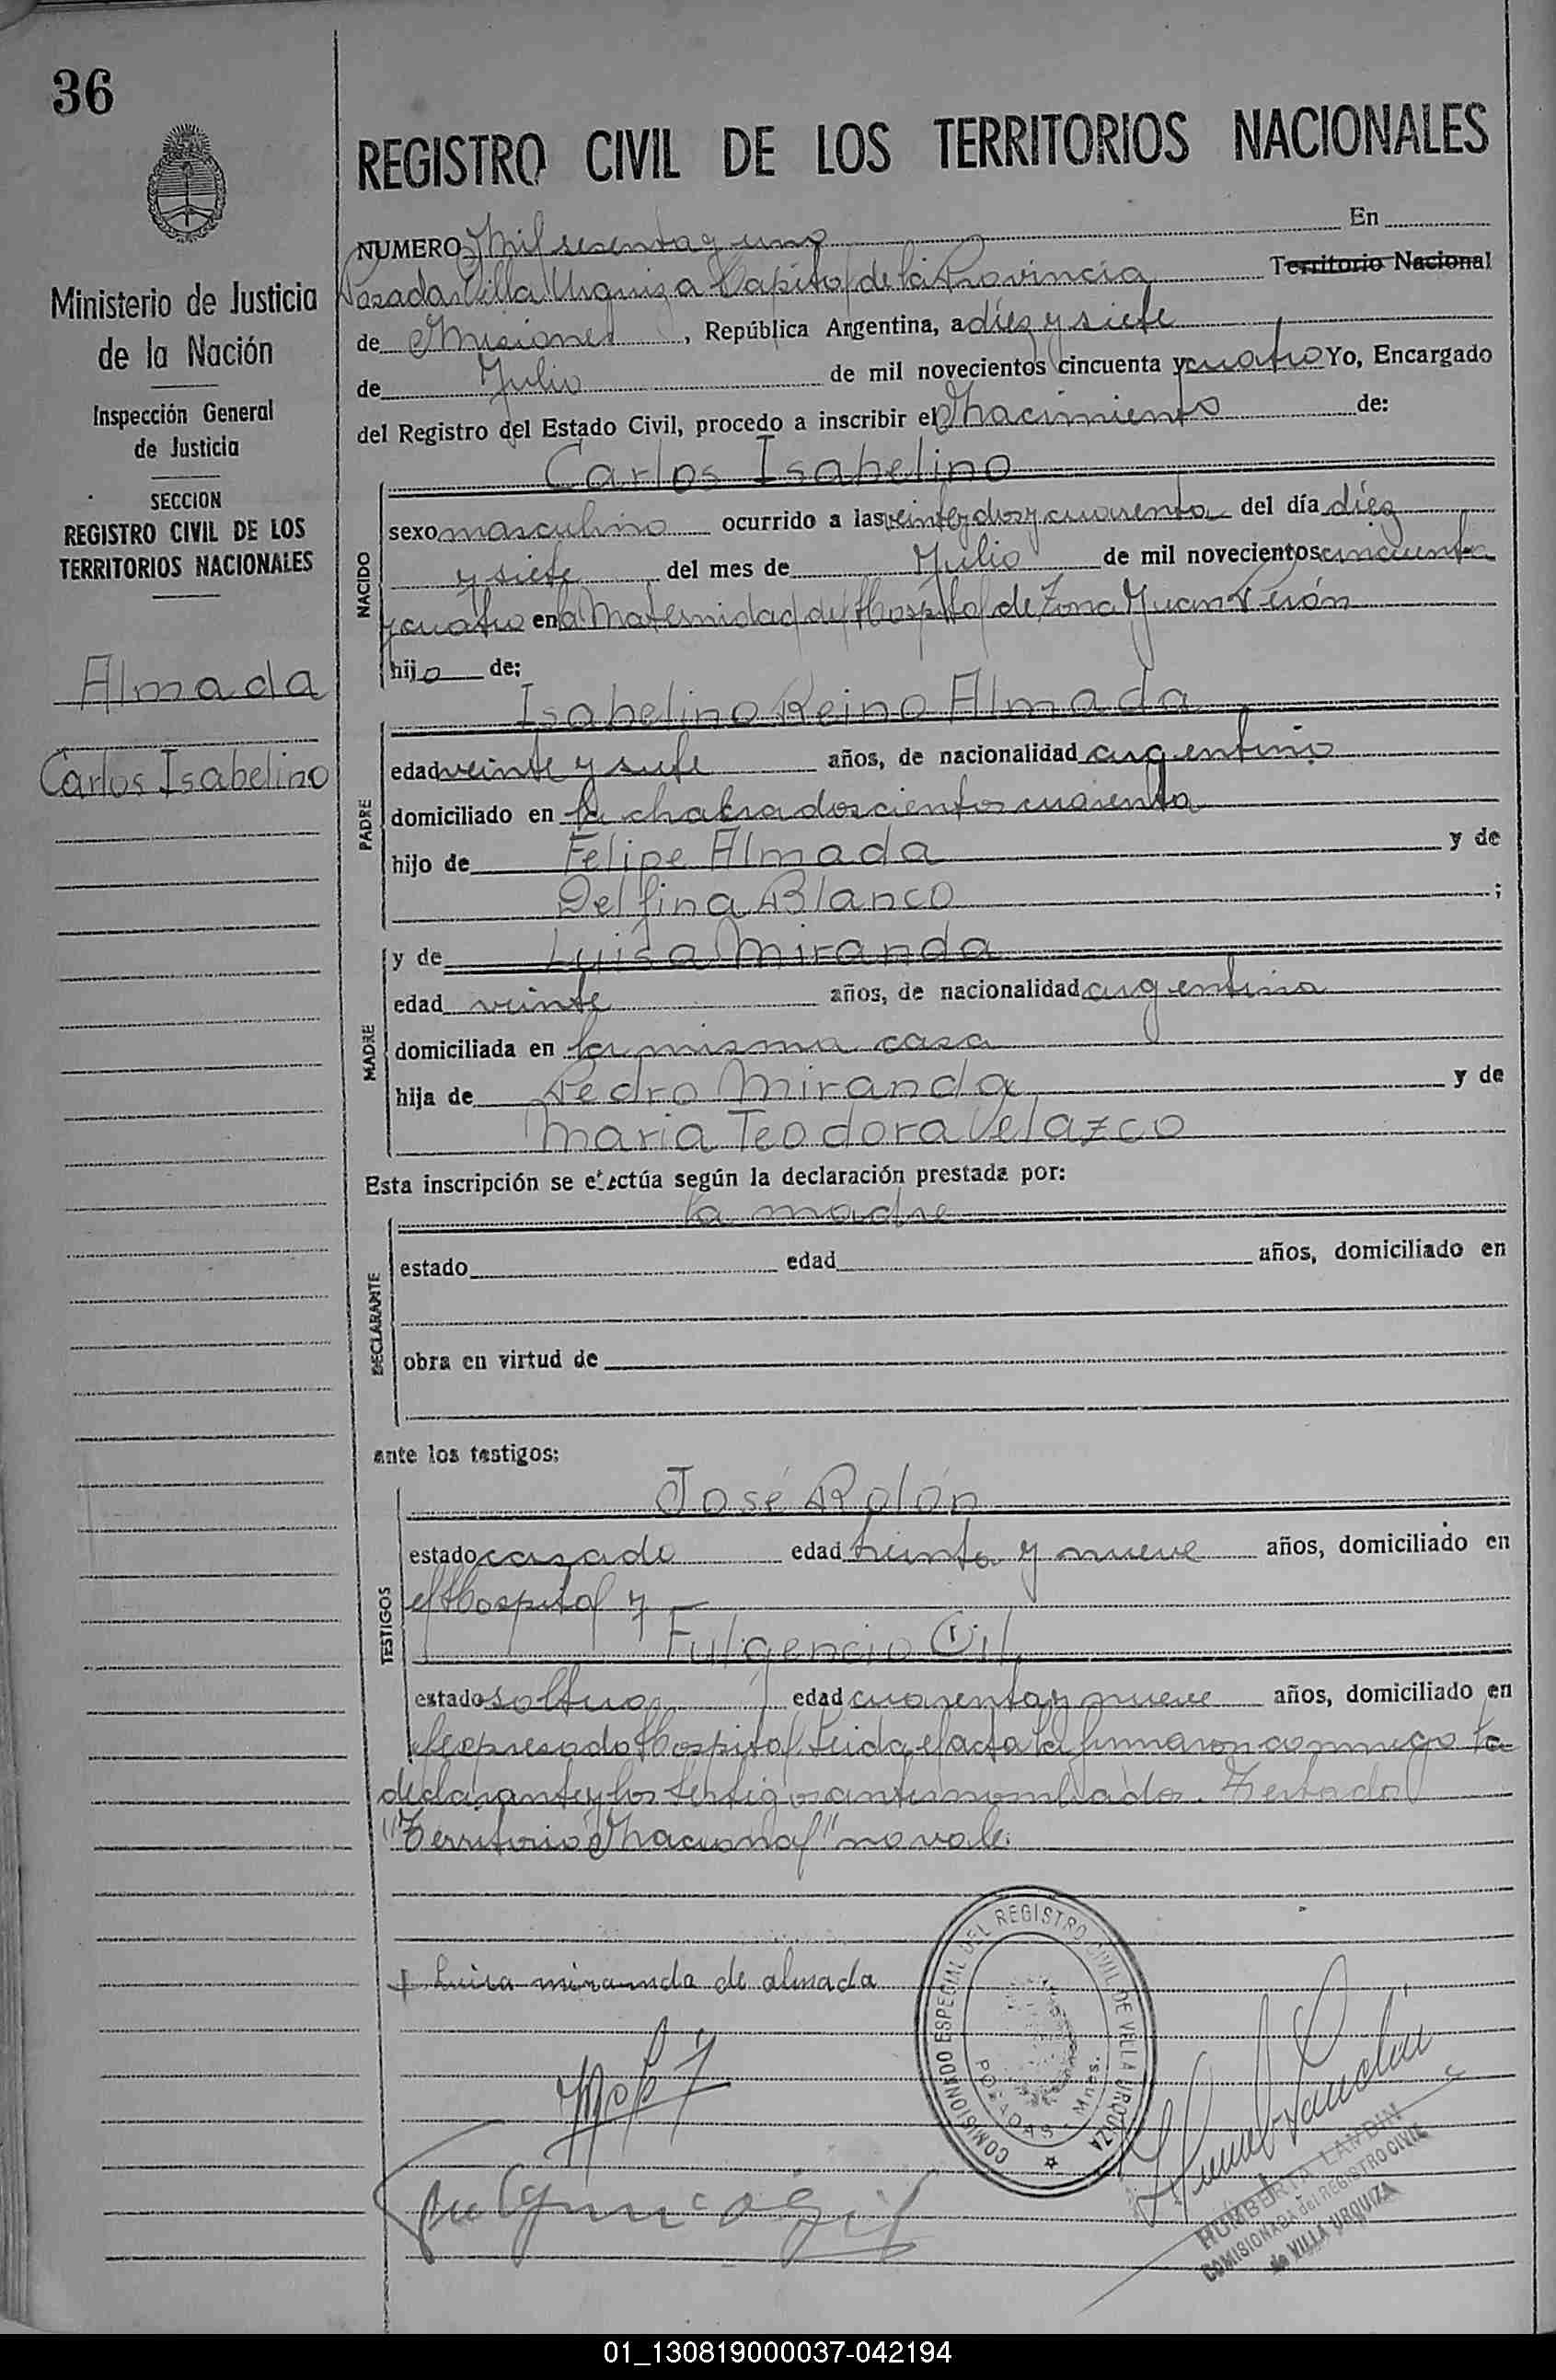 36
REGISTRO CIVIL DE LOS TERRITORIOS NACIONALES
Ministerio de Justicia
de la Nación
Inspección General
de Justicia
SECCION
REGISTRO CIVIL DE LOS
TERRITORIOS NACIONALES
Almada
Carlos Isabelino
NUMERO Mil sesenta y uno En
Posadas Villa Urquiza Capital de la Provincia Territorio Nacional
de Misiones, República Argentina, a diez y siete
de Julio de mil novecientos cincuenta y cuatro Yo, Encargado
del Registro del Estado Civil, procedo a inscribir el Nacimiento de:
Carlos Isabelino
NACIDO
sexo masculino ocurrido a las veinte y dos y cuarenta del día diez
y siete del mes de Julio de mil novecientos cincuenta
y cuatro en la Maternidad del Hospital de Zona Juan Perón
hijo de:
Isabelino Reino Almada
PADRE
edad veinte y siete años, de nacionalidad argentino
domiciliado en la chakra doscientos cuarenta
hijo de Felipe Almada y de
Delfina Blanco ;
MADRE
y de Luisa Miranda
edad veinte años, de nacionalidad argentina
domiciliada en la misma casa
hija de Pedro Miranda y de
Maria Teodora Velazco
Esta inscripción se efectúa según la declaración prestada por:
la madre
DECLARANTE
estado edad años, domiciliado en
obra en virtud de
ante los testigos:
José Rolón
TESTIGOS
estado casado edad treinta y nueve años, domiciliado en
el Hospital y
Fulgencio Gil
estado soltero edad cuarenta y nueve años, domiciliado en
el expresado Hospital. Leida el acta la firmaron conmigo la
declarante y los testigos antes nombrado. Testado
"Territorio Nacional" no vale.
Luisa miranda de almada
COMISIONADO ESPECIAL DEL REGISTRO CIVIL DE VILLA URQUIZA
POSADAS - Mnes.
Fulgencio Gil
HUMBERTA LANDIN
COMISIONADA del REGISTRO CIVIL
de VILLA URQUIZA
01_130819000037-042194